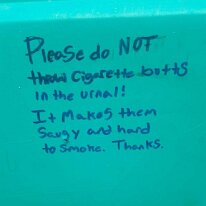 Please do NOT
throw Cigarette butts
in the urnal!
It Makes them
Saugy and hard
to smoke. Thanks.